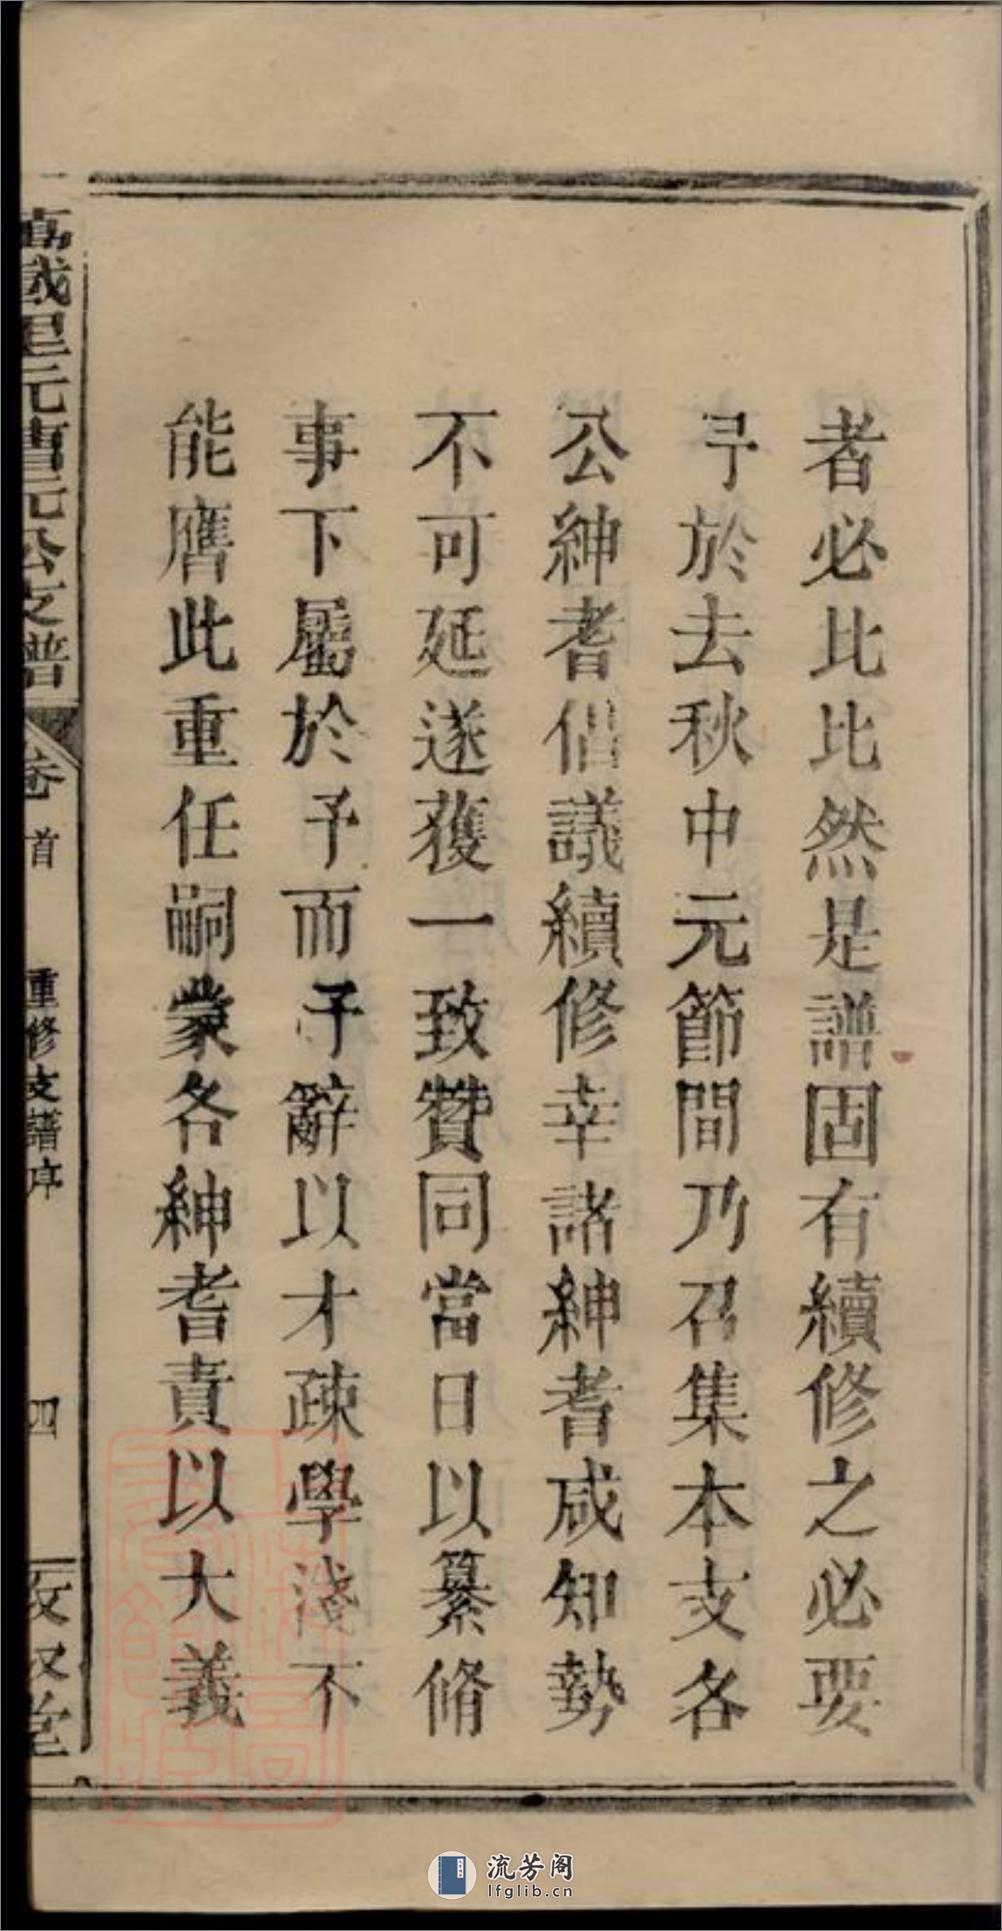 者必比比然是譜固有續修之必要
予於去秋中元節間乃召集本支各
公紳耆倡議續修幸諸紳耆咸知勢
不可延遂獲一致贊同當日以纂脩
事下屬於予而予辭以才疎學淺不
能膺此重任嗣蒙各紳耆責以大義
元曹元公支譜
卷首
重修支譜序
四
堂
流芳阁
lfglib.cn